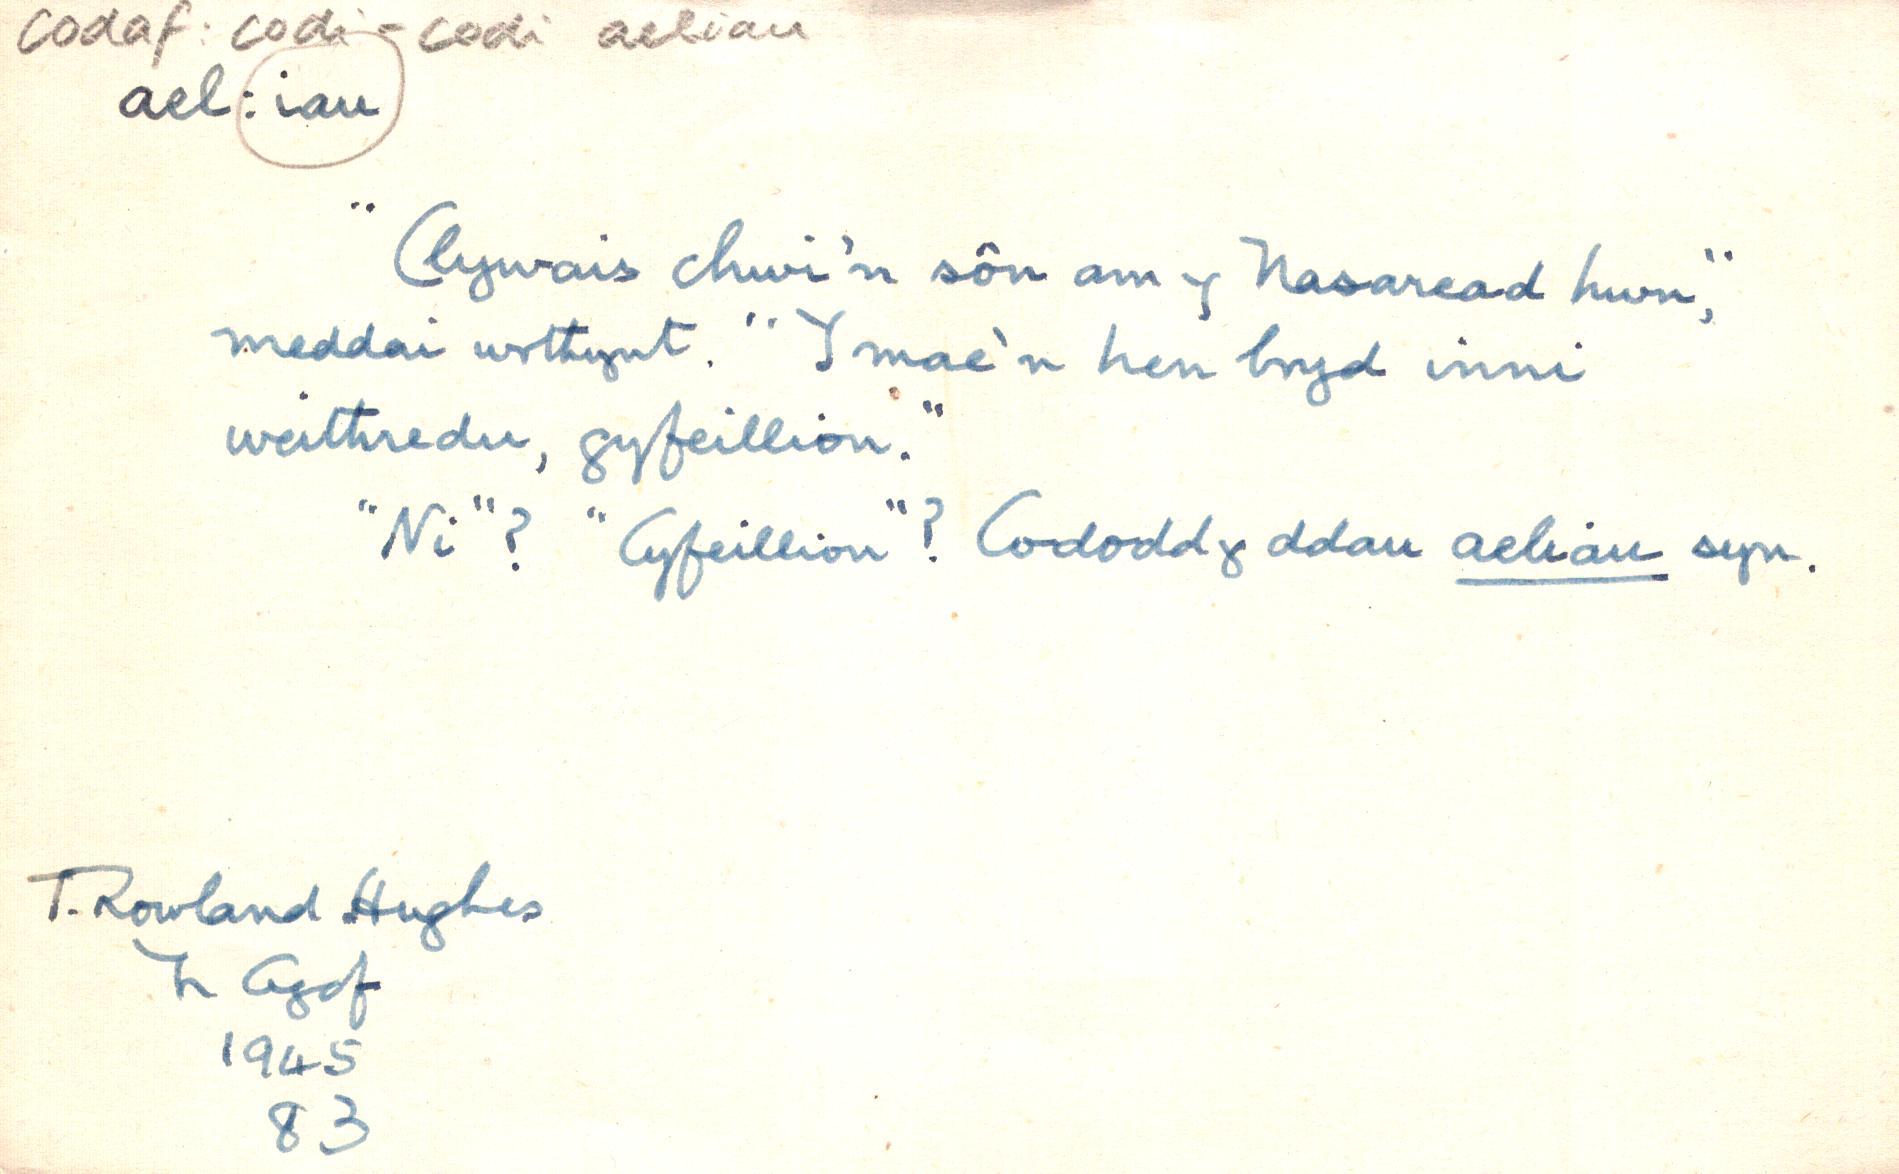 codaf: codi - codi aeliau
ael: iau
"Clywais chwi'n sôn am y Nasaread hwn,"
meddai wrthynt. "Y mae'n hen bryd inni
weithredu, gyfeillion."
"Ni"? "Cyfeillion"? Cododd y ddau aeliau syn.
T. Rowland Hughes
Yr Ogof
1945
83